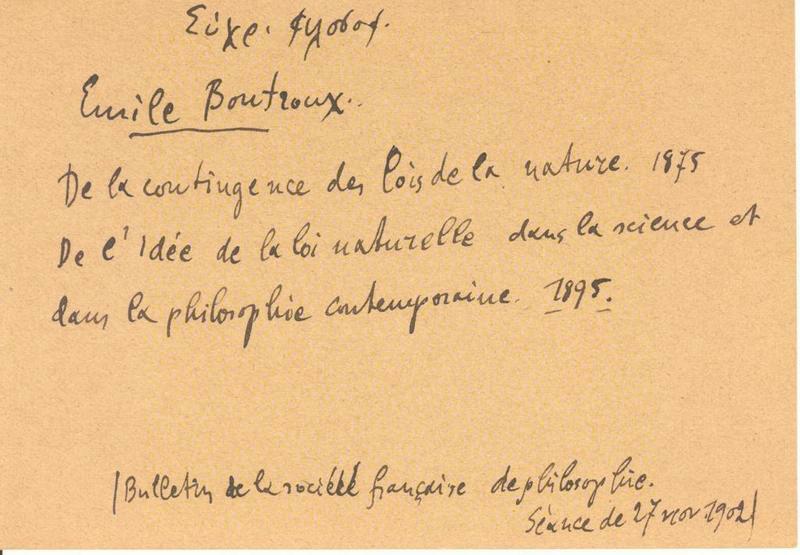 Σύγχρ. φιλοσοφ.
Emile Boutroux.
De la contingence des lois de la nature. 1875
De l'Idée de la loi naturelle dans la science et
dans la philosophie contemporaine. 1895.
(Bulletin de la société française de philosophie.
Séance de 27 nov. 1902)